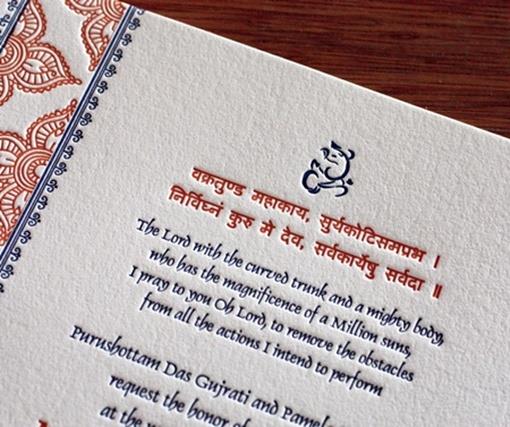 वक्रतुण्ड महाकाय, सुर्यकोटिसमप्रभ ।
निर्विघ्नं कुरु मे देव, सर्वकार्येषु सर्वदा ॥
The Lord with the curved trunk and a mighty body,
who has the magnificence of a Million suns,
I pray to you Oh Lord, to remove the obstacles
from all the actions I intend to perform
Purushottam Das Gujrati and Pamel
request the honor of
at the